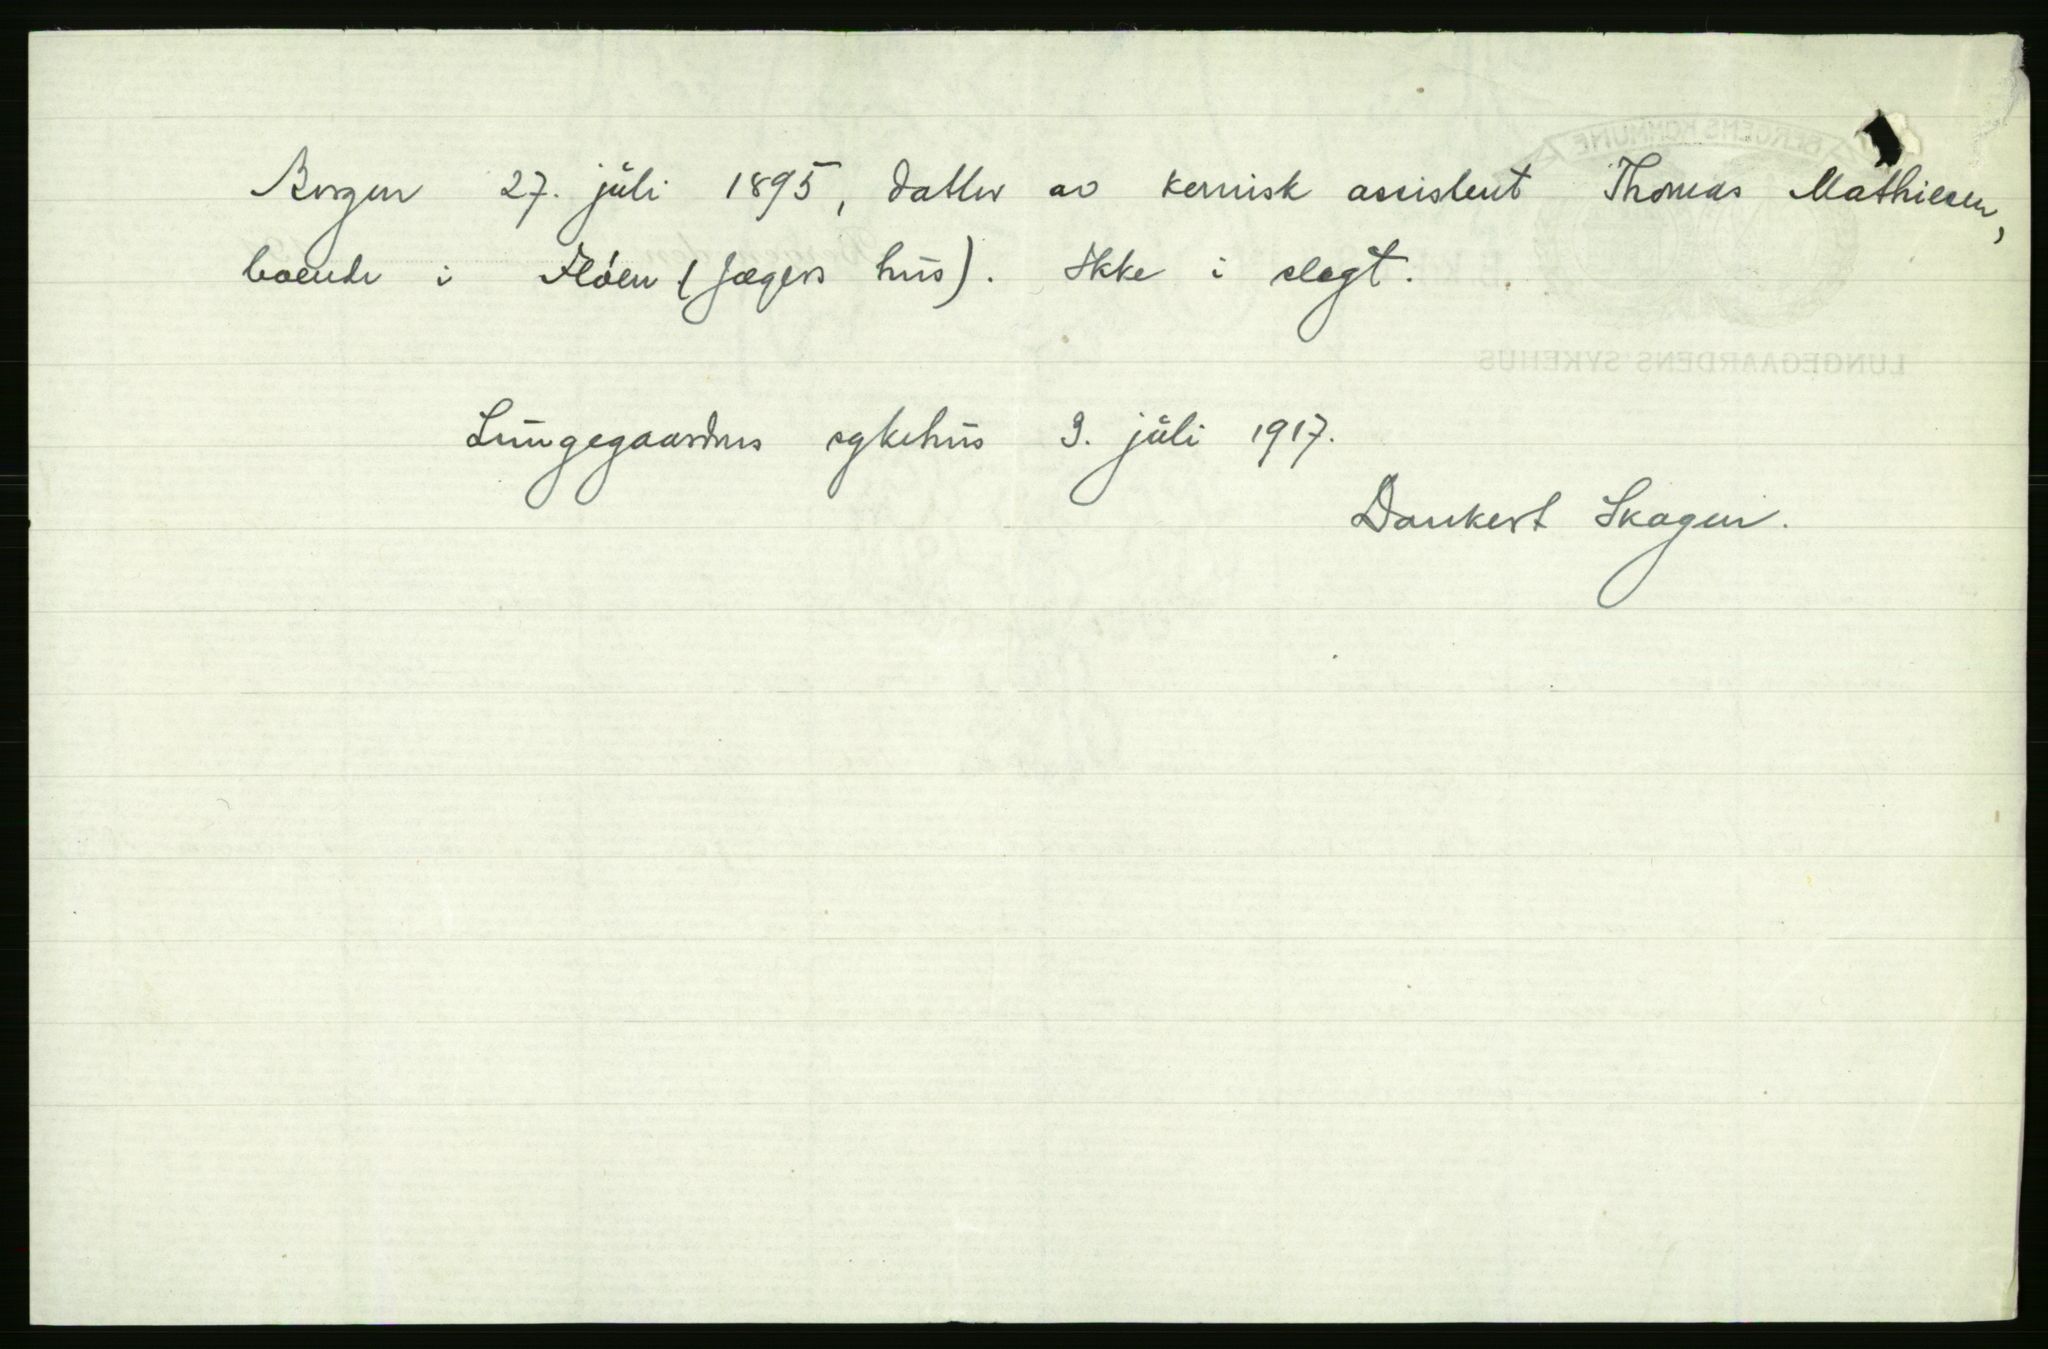 Bergen 27. juli 1895, datter av kemisk assistent Thomas Mathiesen,
boende i Fløen (Jægers hus). Ikke i slegt.
Lungegaardens sykehus 9. juli 1917.
Dankert Skagen.
BERGENS KOMMUNE
LUNGEGAARDENS SYKEHUS